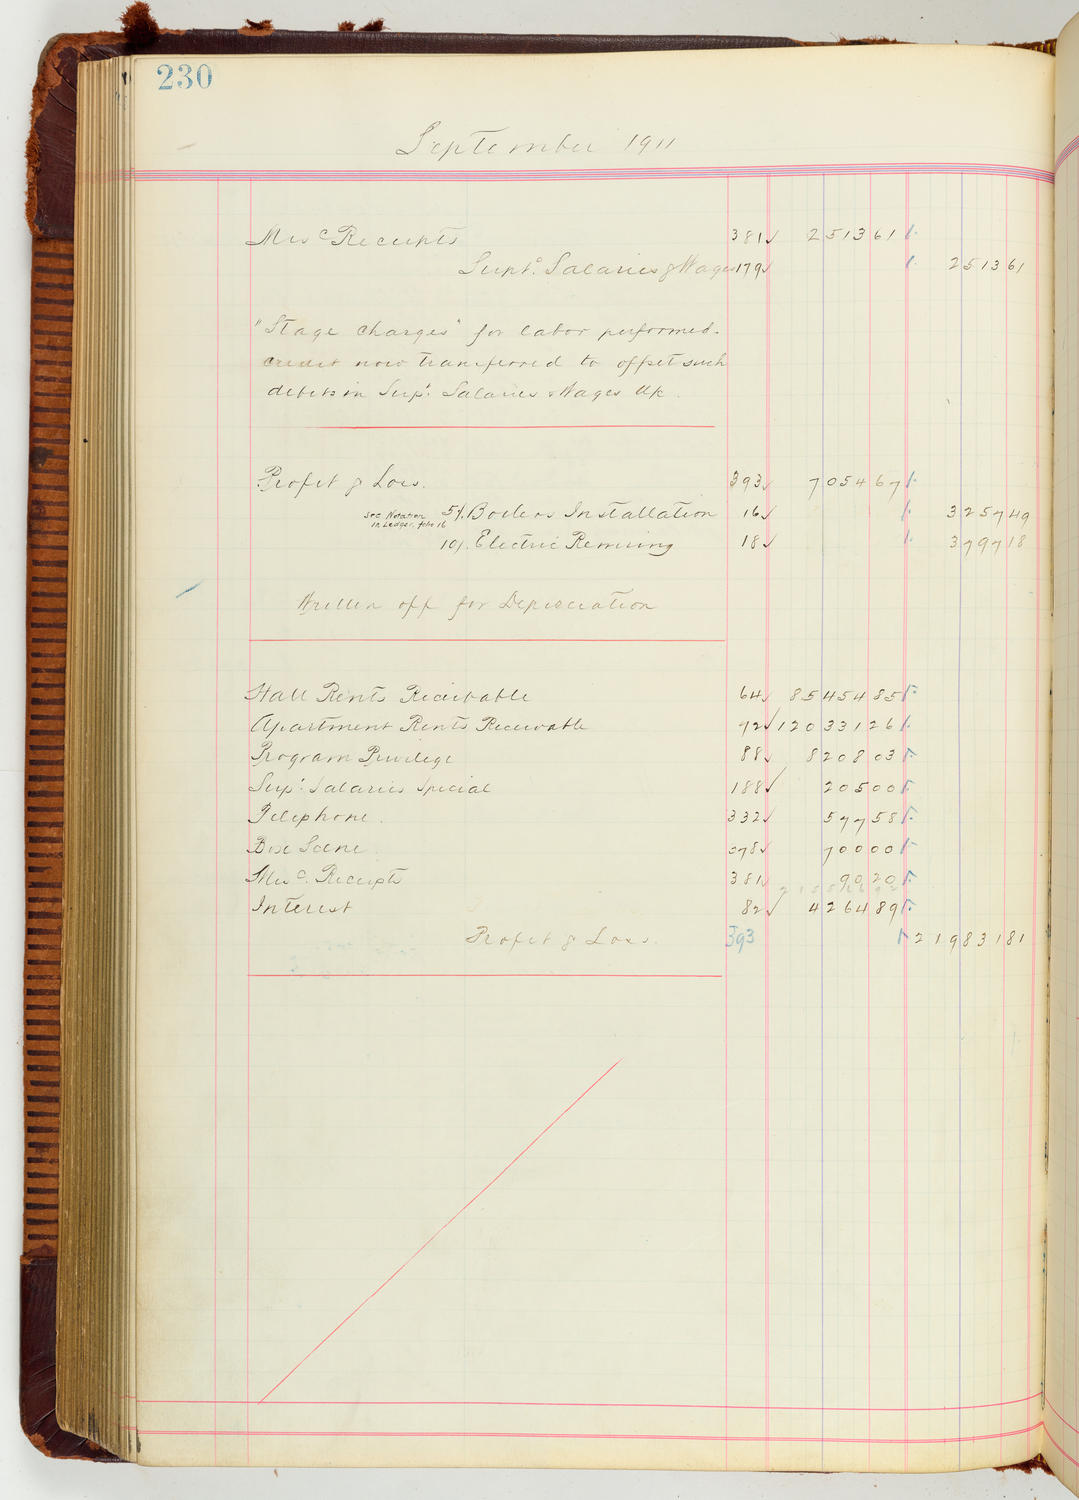 230
September 1911
Misc Receipts 381 ✓ 2513 61
Supt. Salaries & Wages 179 ✓ 2513 61
"Stage Charges" for labor performed.
credit now transferred to offset such
debits in Supt. Salaries & Wages a/c.
Profit & Loss. 393 ✓ 7054 67
see Notation in Ledger, folio 16 5%. Boilers Installation 16 ✓ 3257 49
10%. Electric Rewiring 18 ✓ 3797 18
Written off for Depreciation
Hall Rents Receivable 64 ✓ 85454 85
Apartment Rents Receivable 92 ✓ 120331 26
Program Privilege 88 ✓ 8208 03
Supt. Salaries Special 188 ✓ 205 00
Telephone. 332 ✓ 577 58
Box Scene 378 ✓ 700 00
Misc. Receipts 381 ✓ 90 20
Interest 82 ✓ 4264 89
Profit & Loss. 393 219831 81